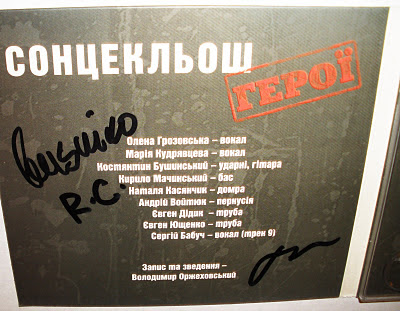 СОНЦЕКЛЬОШ
ГЕРОЇ
Олена Грозовська – вокал
Марія Кудрявцева – вокал
Костянтин Бушинський – ударні, гітара
Кирило Мачинський – бас
Наталя Касянчик – домра
Андрій Войтюк – перкусія
Євген Дідик – труба
Євген Ющенко – труба
Сергій Бабуч – вокал (трек 9)
R.C.
Запис та зведення –
Володимир Оржеховський